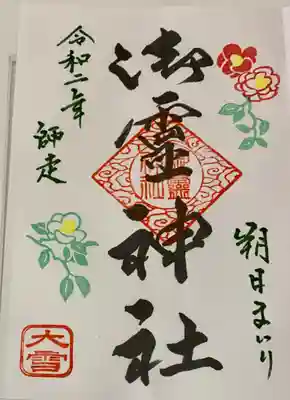 朔日まいり
御霊神社
令和二年
師走
大雪